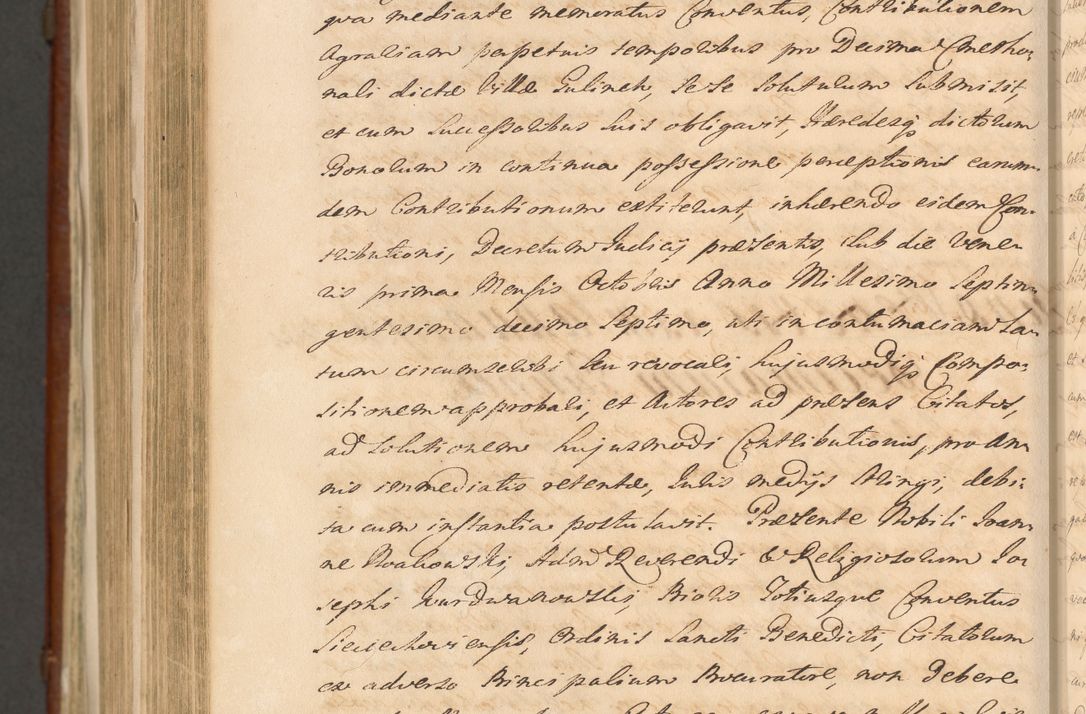 qva mediante memoratus Conventus, Contributionem
Agrariam perpetuis temporibus pro Decima Cmetho„
nali dictæ Villæ Gulinek, sese soluturum submisit,
et cum Successoribus suis obligavit, Hæredesq₃ dictorum
Bonorum in continua possessione perceptionis earum„
dem Contributionum extiterunt, inhærendo eidem Con„
tributioni, Decretum Judicij præsentis, sub die Vene„
ris prima Mensis Octobris Anno Millesimo Septin„
gentesimo decimo Septimo, uti in contumaciam La„
tum circumscribi seu revocari, hujusmodiq₃ Compo„
sitionem approbari, et Actores ad præsens Citatos,
ad solutionem hujusmodi Contributionis, pro An„
nis immediatis retentæ, Juris medijs stringi, debi„
ta cum instantia postulavit. Præsente Nobili Joan„
ne Adm Reverendi & Religiosorum Jo„
sephi Kurdwanowski, Prioris Totiusque Conventus
Sieciechoviensis, Ordinis Sancti Benedicti, Citatorum
ex adverso Principalium Procuratore, non debere